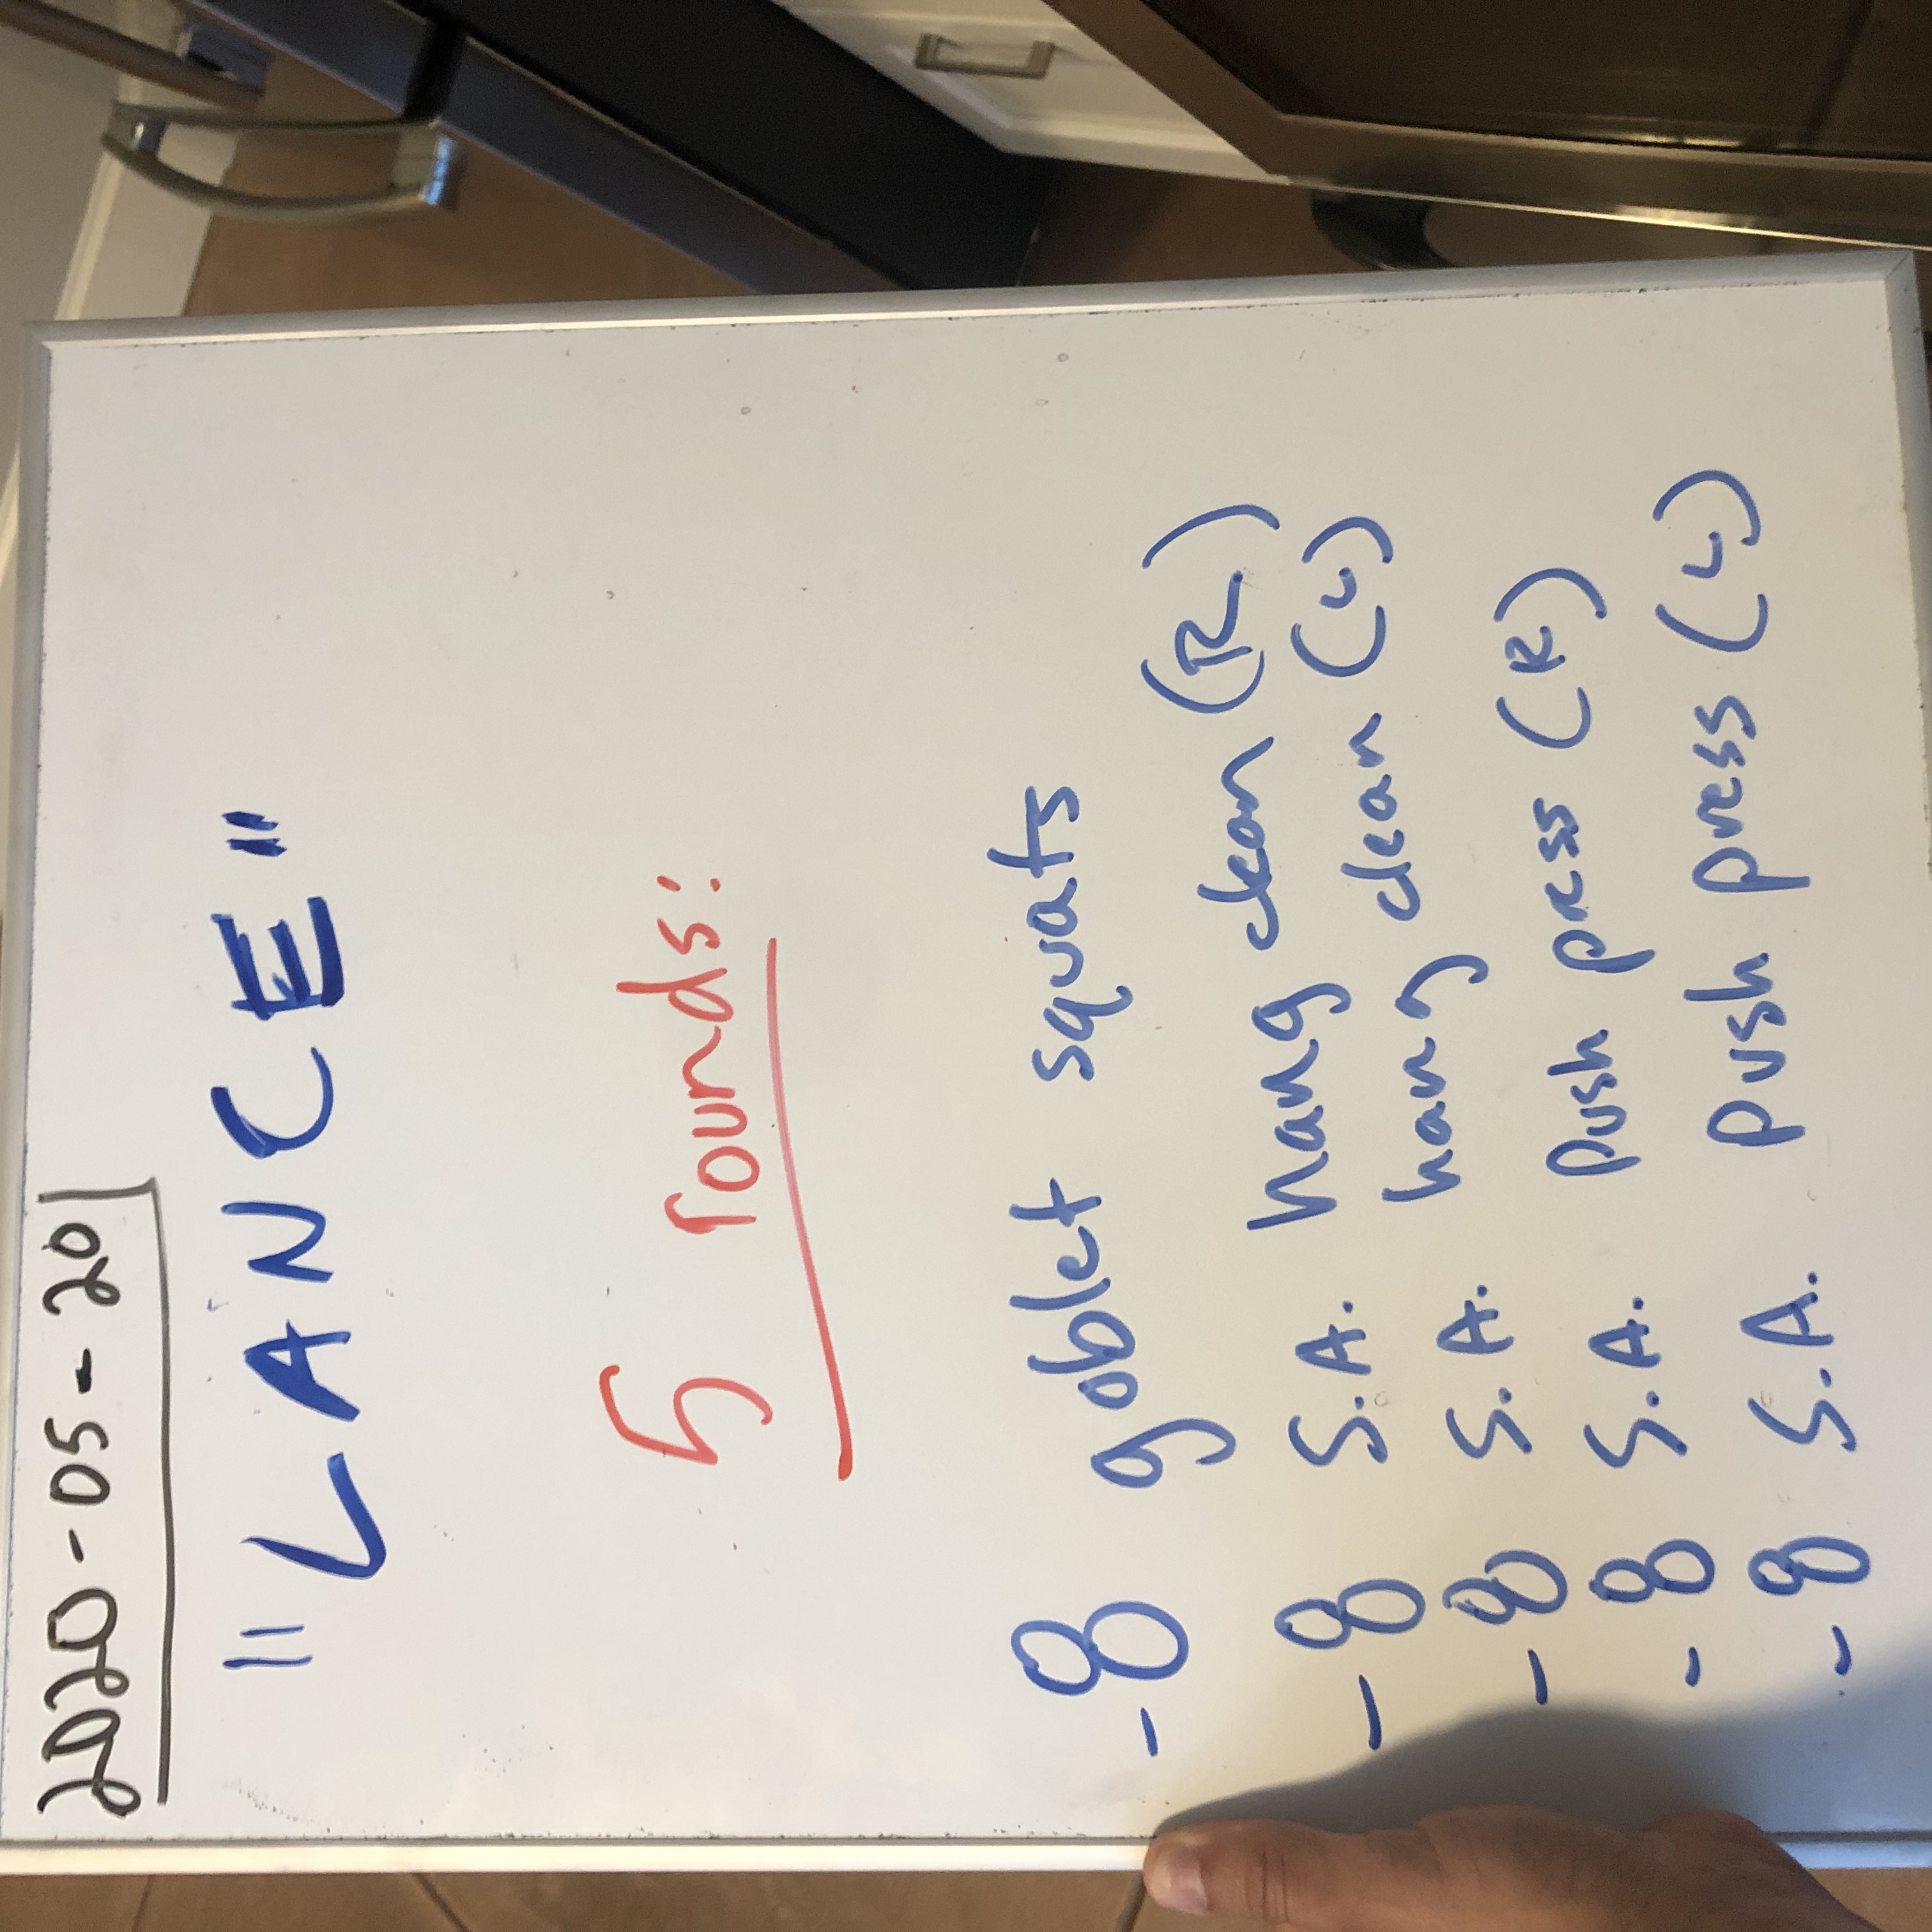 2020-05-20
"LANCE"
5 rounds:
-8 goblet squats
-8 S.A. hang clean (R)
-8 S.A. hang clean (L)
-8 S.A. Push press (R)
-8 S.A. Push press (L)